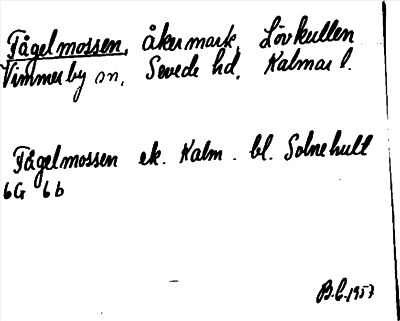 Fågelmossen, åkermark, Lövkullen
Vimmerby sn, Sevede hd, Kalmar l.
Fågelmossen ek. Kalm. bl. Solnehult
6G 6b
B.C. 1957